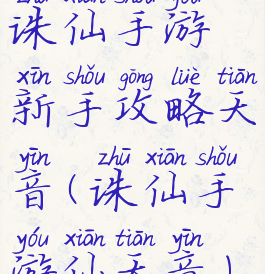 zhū xiān shǒu yóu
诛仙手游
xīn shǒu gōng lüè tiān
新手攻略天
yīn zhū xiān shǒu
音(诛仙手
yóu xiān tiān yīn
游仙天音)